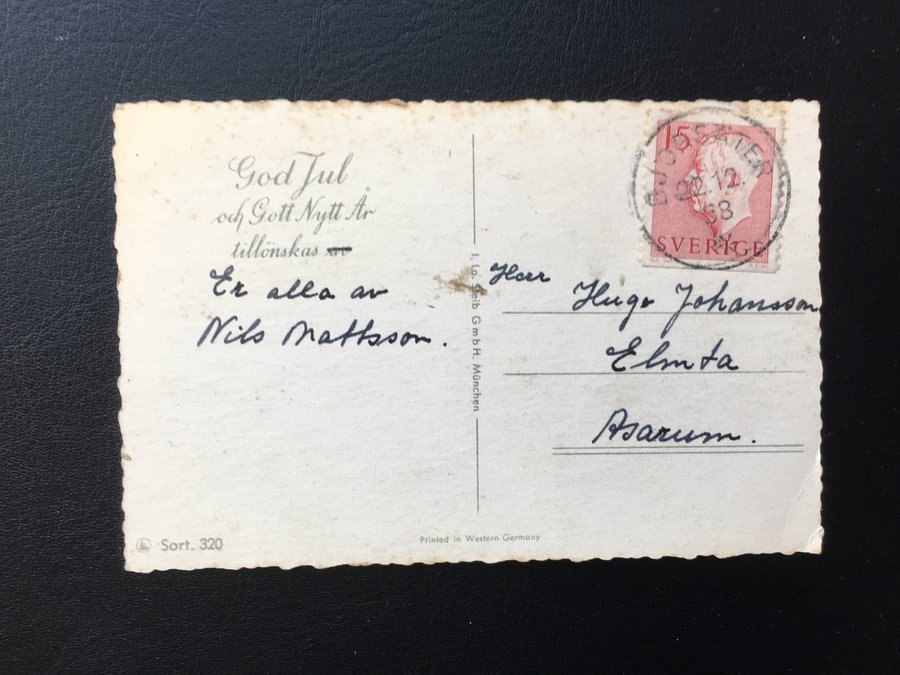 God Jul
och Gott Nytt År
tillönskas av
Er alla av
Nils Mattsson.
I. Lo. Geib GmbH. München
15
22.12.
58
SVERIGE
Herr
Hugo Johansson
Elmta
Asarum.
Sort. 320
Printed in Western Germany